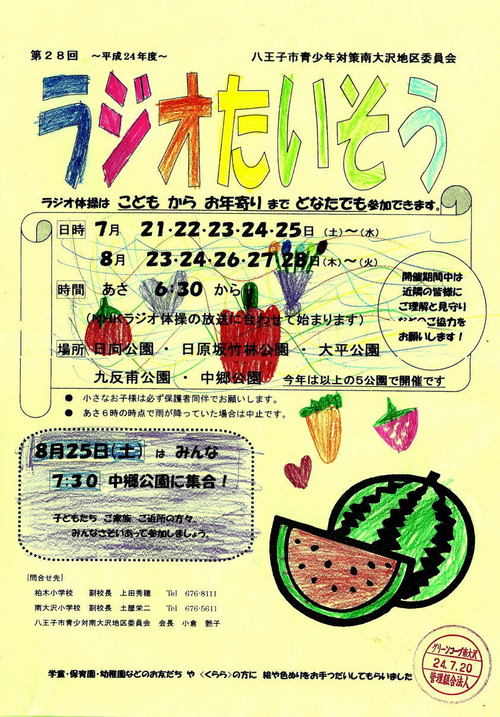 第28回 ～平成24年度～ 八王子市青少年対策南大沢地区委員会
ラジオたいそう
ラジオ体操は こども から お年寄り まで どなたでも参加できます。
日時 7月 21・22・23・24・25日(土)～(水)
8月 23・24・26・27・28日(木)～(火)
時間 あさ 6:30 から
(NHKラジオ体操の放送に合わせて始まります)
場所 日向公園 ・ 日原坂竹林公園 ・ 大平公園
九反甫公園 ・ 中郷公園 今年は以上の5公園で開催です
開催期間中は
近隣の皆様に
ご理解と見守り
などへご協力を
お願いします！
● 小さなお子様は必ず保護者同伴でお願いします。
● あさ6時の時点で雨が降っていた場合は中止です。
8月25日(土) は みんな
7:30 中郷公園に集合！
子どもたち ご家族 ご近所の方々、
みんなさそいあって参加しましょう。
[問合せ先]
柏木小学校 副校長 上田秀穂 Tel 676-8111
南大沢小学校 副校長 土屋栄二 Tel 676-5611
八王子市青少対南大沢地区委員会 会長 小倉 艶子
学童・保育園・幼稚園などのお友だち や 〈くらら〉の方に 絵や色ぬりをお手つだいしてもらいました
グリーンコープ南大沢
24.7.20
管理組合法人